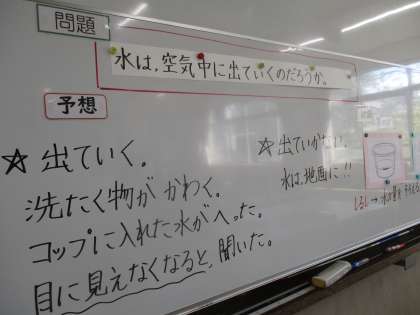 問題
水は，空気中に出ていくのだろうか。
予想
☆ 出ていく。
洗たく物が かわく。
コップに入れた水が へった。
目に見えなくなると，聞いた。
☆ 出ていかない。
水は、地面に!!
しるし→水の量を